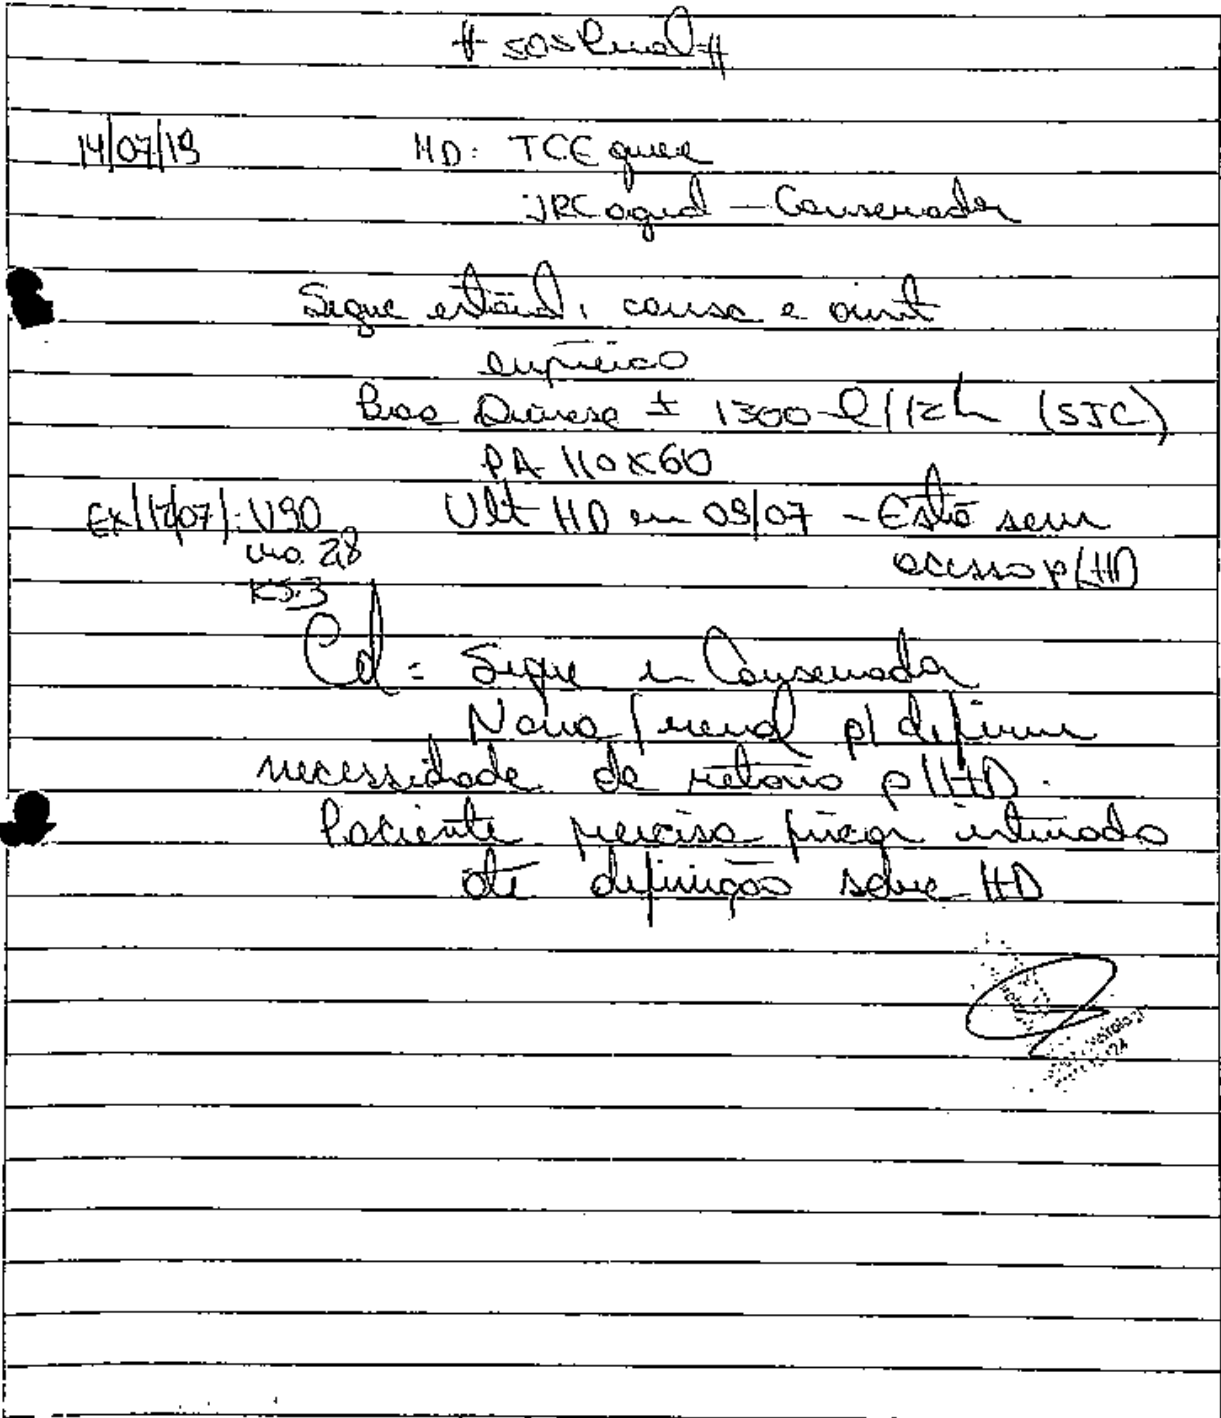 # SOS Renal #
14/07/19 HD: TCE grave
IRC aguda - Conservador
Segue estável, consc e
Boa Diurese ± 1300 12h (STC)
PA 110x60
Ult HD em 09/07 - Está sem
acesso p/ HD
Ex
K 5.3
Cd: Segue em Conservador
Nova f renal p/ definir
necessidade de retorno p/ HD.
Paciente precisa ficar internado
até definição sobre HD